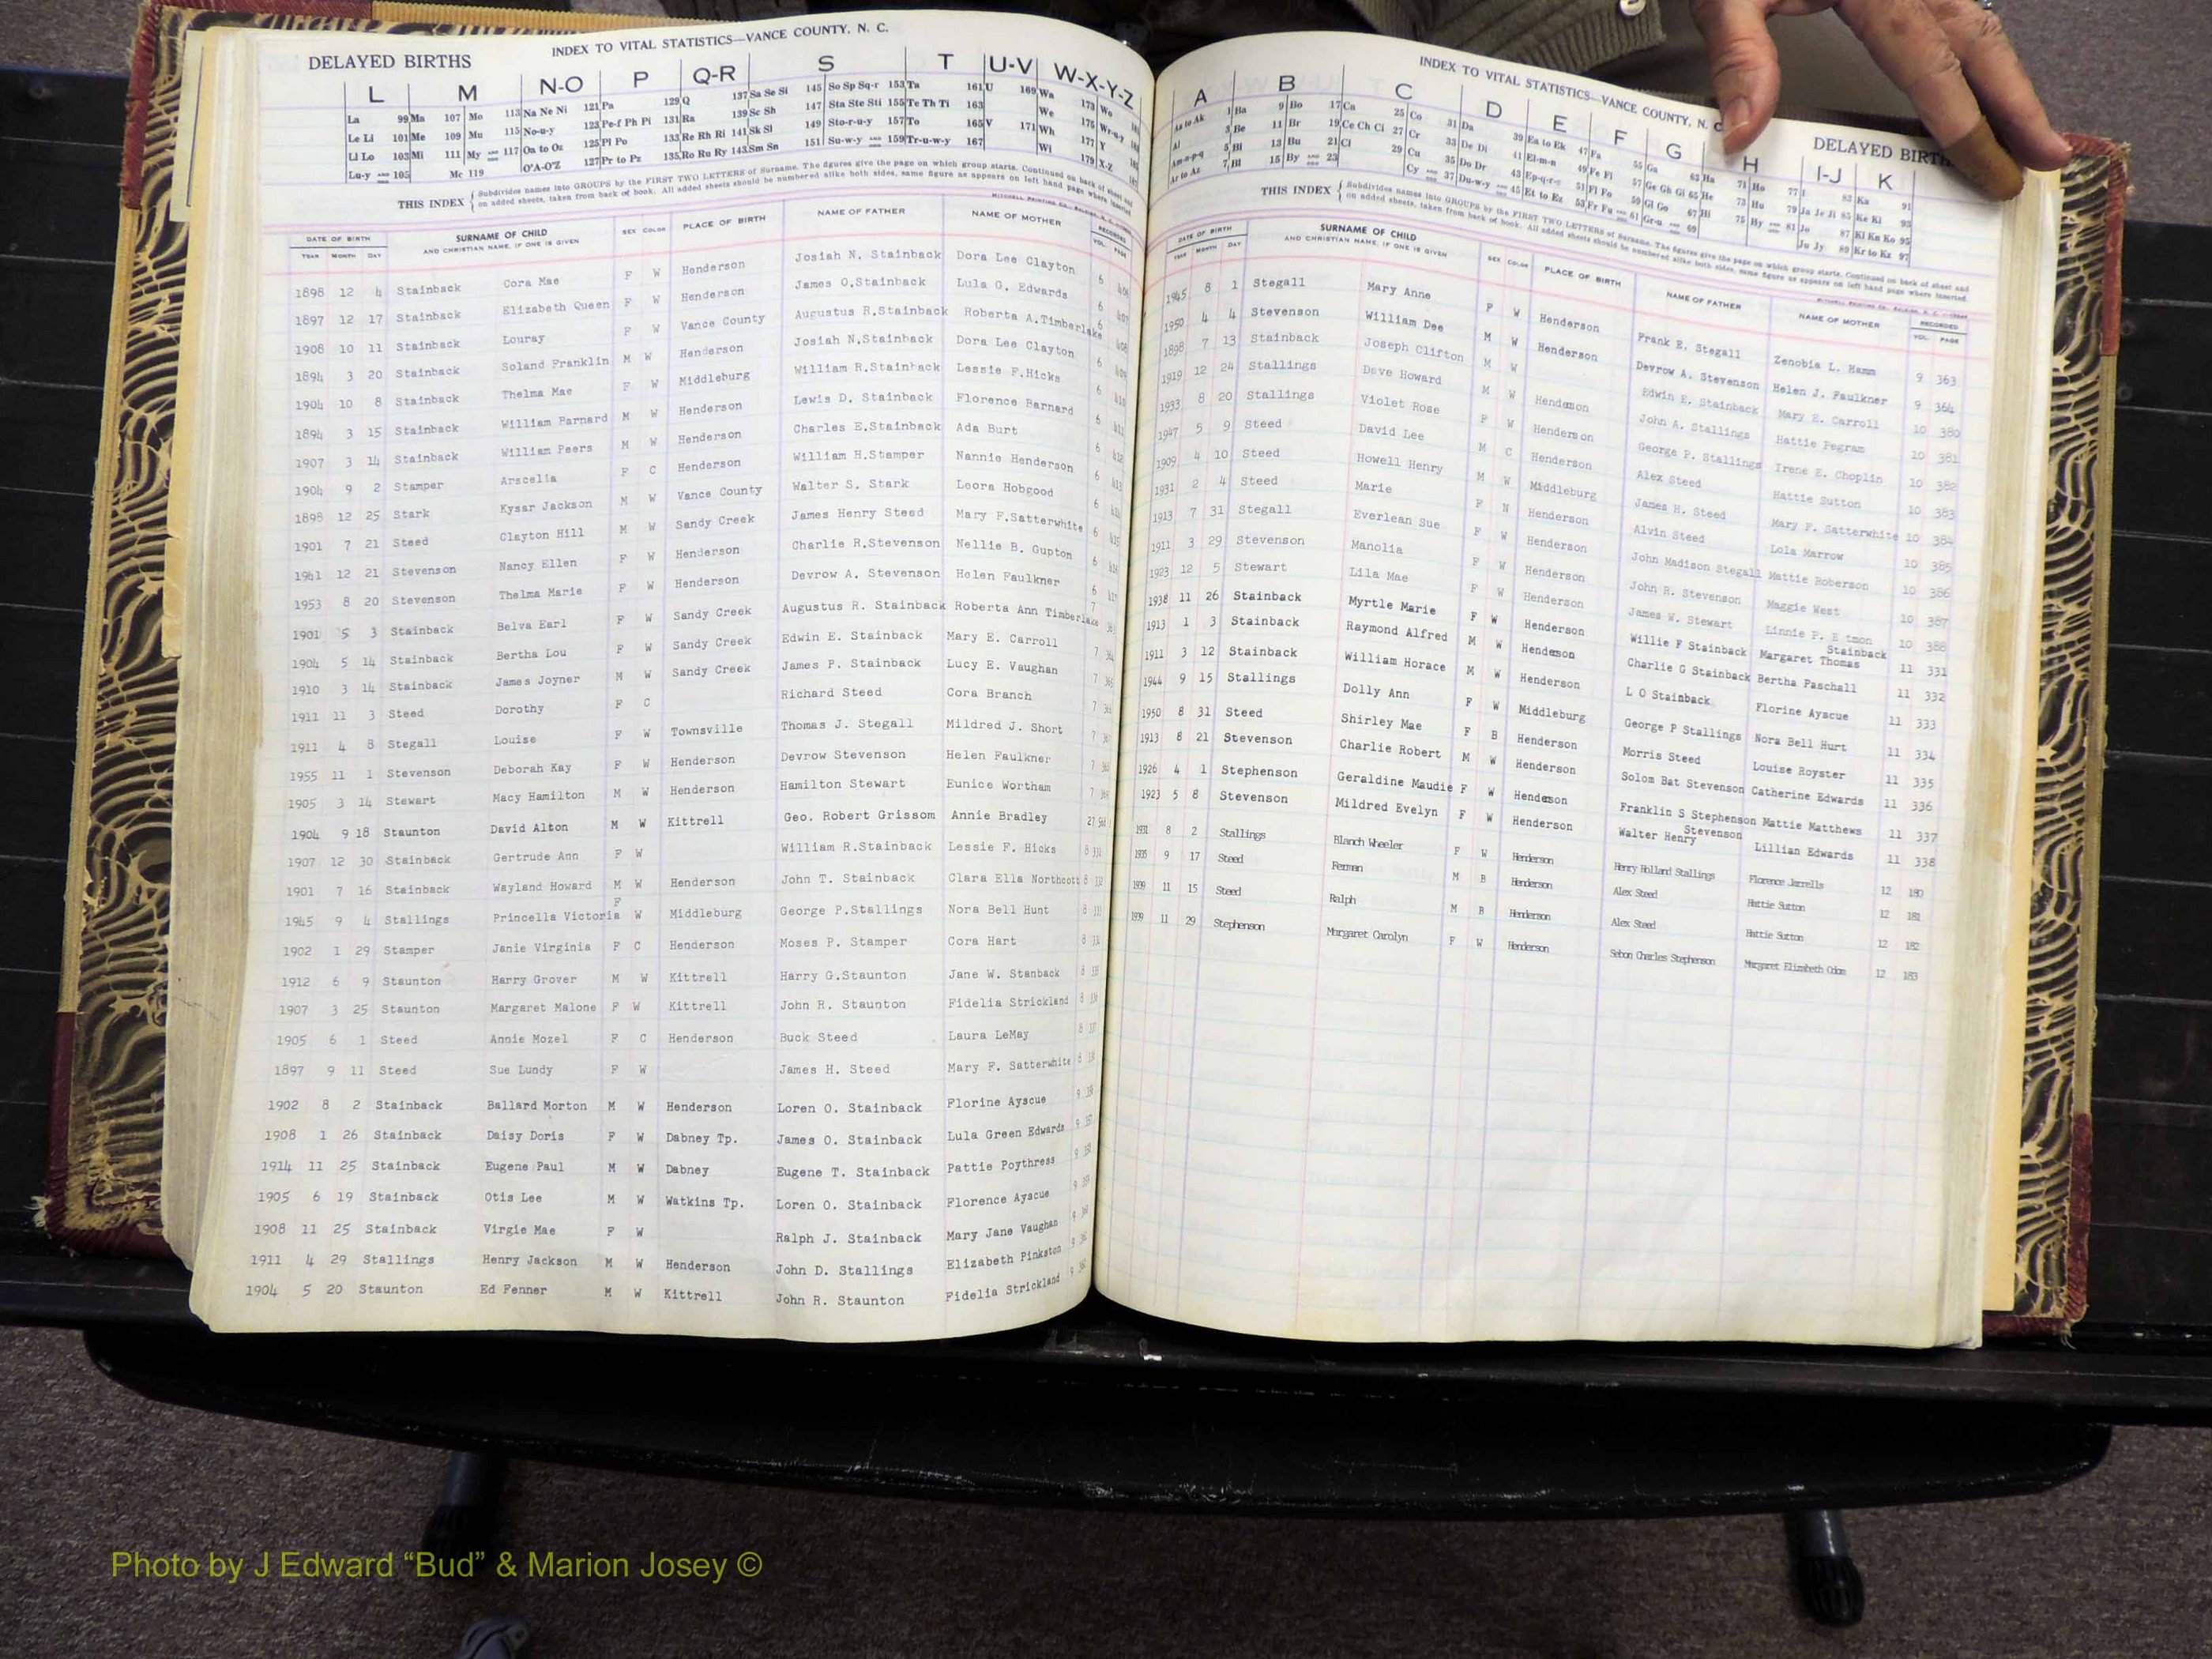 DELAYED BIRTHS INDEX TO VITAL STATISTICS—VANCE COUNTY, N. C.
L M N-O P Q-R S T U-V W-X-Y-Z
La 99 Ma 107 Mo 113 Na Ne Ni 121 Pa 129 Q 137 Sa Se Si 145 So Sp Sq-r 153 Ta 161 U 169 Wa 173 Wo
Le Li 101 Me 109 Mu 115 No-u-y 123 Pe-f Ph Pi 131 Ra 139 Sc Sh 147 Sta Ste Sti 155 Te Th Ti 163 We 175 Wr-u-y
Ll Lo 103 Mi 111 My AND 117 Oa to Oz 125 Pl Po 133 Re Rh Ri 141 Sk Sl 149 Sto-r-u-y 157 To 165 V 171 Wh 177 Y
Lu-y AND 105 Mc 119 O'A-O'Z 127 Pr to Pz 135 Ro Ru Ry 143 Sm Sn 151 Su-w-y AND 159 Tr-u-w-y 167 Wi 179 X-Z
THIS INDEX { Subdivides names into GROUPS by the FIRST TWO LETTERS of Surname. The figures give the page on which group starts. Continued on back of sheet and
on added sheets, taken from back of book. All added sheets should be numbered alike both sides, same figure as appears on left hand page where inserted.
DATE OF BIRTH SURNAME OF CHILD SEX COLOR PLACE OF BIRTH NAME OF FATHER NAME OF MOTHER RECORDED
YEAR MONTH DAY AND CHRISTIAN NAME, IF ONE IS GIVEN VOL. PAGE
1898 12 4 Stainback Cora Mae F W Henderson Josiah N. Stainback Dora Lee Clayton 6
1897 12 17 Stainback Elizabeth Queen F W Henderson James O.Stainback Lula G. Edwards 6
1908 10 11 Stainback Louray F W Vance County Augustus R.Stainback Roberta A.Timberlake 6
1894 3 20 Stainback Soland Franklin M W Henderson Josiah N.Stainback Dora Lee Clayton 6
1904 10 8 Stainback Thelma Mae F W Middleburg William R.Stainback Lessie F.Hicks 6
1894 3 15 Stainback William Barnard M W Henderson Lewis D. Stainback Florence Barnard 6
1907 3 14 Stainback William Peers M W Henderson Charles E.Stainback Ada Burt 6
1904 9 2 Stamper Arscelia F C Henderson William H.Stamper Nannie Henderson 6
1898 12 25 Stark Kysar Jackson M W Vance County Walter S. Stark Leora Hobgood 6
1901 7 21 Steed Clayton Hill M W Sandy Creek James Henry Steed Mary F.Satterwhite 6
1941 12 21 Stevenson Nancy Ellen F W Henderson Charlie R.Stevenson Nellie B. Gupton 6
1953 8 20 Stevenson Thelma Marie F W Henderson Devrow A. Stevenson Helen Faulkner 6
1901 5 3 Stainback Belva Earl F W Sandy Creek Augustus R. Stainback Roberta Ann Timberlake 7
1904 5 14 Stainback Bertha Lou F W Sandy Creek Edwin E. Stainback Mary E. Carroll 7
1910 3 14 Stainback James Joyner M W Sandy Creek James P. Stainback Lucy E. Vaughan 7
1911 11 3 Steed Dorothy F C Richard Steed Cora Branch 7
1911 4 8 Stegall Louise F W Townsville Thomas J. Stegall Mildred J. Short 7
1955 11 1 Stevenson Deborah Kay F W Henderson Devrow Stevenson Helen Faulkner 7
1905 3 14 Stewart Macy Hamilton M W Henderson Hamilton Stewart Eunice Wortham 7
1904 9 18 Staunton David Alton M W Kittrell Geo. Robert Grissom Annie Bradley
1907 12 30 Stainback Gertrude Ann F W William R.Stainback Lessie F. Hicks 8
1901 7 16 Stainback Wayland Howard M W Henderson John T. Stainback Clara Ella Northcott 8
1945 9 4 Stallings Princella Victoria F W Middleburg George P.Stallings Nora Bell Hunt 8
1902 1 29 Stamper Janie Virginia F C Henderson Moses P. Stamper Cora Hart 8
1912 6 9 Staunton Harry Grover M W Kittrell Harry G.Staunton Jane W. Stanback 8
1907 3 25 Staunton Margaret Malone F W Kittrell John R. Staunton Fidelia Strickland 8
1905 6 1 Steed Annie Mozel F C Henderson Buck Steed Laura LeMay 8
1897 9 11 Steed Sue Lundy F W James H. Steed Mary F. Satterwhite 8
1902 8 2 Stainback Ballard Morton M W Henderson Loren O. Stainback Florine Ayscue 9
1908 1 26 Stainback Daisy Doris F W Dabney Tp. James O. Stainback Lula Green Edwards 9
1914 11 25 Stainback Eugene Paul M W Dabney Eugene T. Stainback Pattie Poythress 9
1905 6 19 Stainback Otis Lee M W Watkins Tp. Loren O. Stainback Florence Ayscue 9
1908 11 25 Stainback Virgie Mae F W Ralph J. Stainback Mary Jane Vaughan 9
1911 4 29 Stallings Henry Jackson M W Henderson John D. Stallings Elizabeth Pinkston 9
1904 5 20 Staunton Ed Fenner M W Kittrell John R. Staunton Fidelia Strickland 9
INDEX TO VITAL STATISTICS—VANCE COUNTY, N. C. DELAYED
A B C D E F G H I-J K
Aa to Ak 1 Ba 9 Bo 17 Ca 25 Co 31 Da 39 Ea to Ek 47 Fa 55 Ga 63 Ha 71 Ho 77 I 83 Ka 91
Al 3 Be 11 Br 19 Ce Ch Ci 27 Cr 33 De Di 41 El-m-n 49 Fe Fi 57 Ge Gh Gi 65 He 73 Hu 79 Ja Je Ji 85 Ke Ki 93
Am-n-p-q 5 Bi 13 Bu 21 Cl 29 Cu 35 Do Dr 43 Ep-q-r-s 51 Fl Fo 59 Gl Go 67 Hi 75 Hy AND 81 Jo 87 Kl Kn Ko 95
Ar to Az 7 Bl 15 By AND 23 Cy AND 37 Du-w-y AND 45 Et to Ez 53 Fr Fu AND 61 Gr-u AND 69 Ju Jy 89 Kr to Kz 97
THIS INDEX { Subdivides names into GROUPS by the FIRST TWO LETTERS of Surname. The figures give the page on which group starts. Continued on back of sheet and
on added sheets, taken from back of book. All added sheets should be numbered alike both sides, same figure as appears on left hand page where inserted.
DATE OF BIRTH SURNAME OF CHILD SEX COLOR PLACE OF BIRTH NAME OF FATHER NAME OF MOTHER RECORDED
YEAR MONTH DAY AND CHRISTIAN NAME, IF ONE IS GIVEN VOL. PAGE
1945 8 1 Stegall Mary Anne F W Henderson Frank E. Stegall Zenobia L. Hamm 9 363
1950 4 4 Stevenson William Dee M W Henderson Devrow A. Stevenson Helen J. Faulkner 9 364
1898 7 13 Stainback Joseph Clifton M W Edwin E. Stainback Mary E. Carroll 10 380
1919 12 24 Stallings Dave Howard M W Henderson John A. Stallings Hattie Pegram 10 381
1933 8 20 Stallings Violet Rose F W Henderson George P. Stallings Irene E. Choplin 10 382
1947 5 9 Steed David Lee M C Henderson Alex Steed Hattie Sutton 10 383
1909 4 10 Steed Howell Henry M W Middleburg James H. Steed Mary F. Satterwhite 10 384
1931 2 4 Steed Marie F N Henderson Alvin Steed Lola Marrow 10 385
1913 7 31 Stegall Everlean Sue F W Henderson John Madison Stegall Mattie Roberson 10 386
1911 3 29 Stevenson Manolia F W Henderson John R. Stevenson Maggie West 10 387
1923 12 5 Stewart Lila Mae F W Henderson James W. Stewart Linnie P. E tmon 10 388
1938 11 26 Stainback Myrtle Marie F W Henderson Willie F Stainback Margaret Thomas Stainback 11 331
1913 1 3 Stainback Raymond Alfred M W Henderson Charlie G Stainback Bertha Paschall 11 332
1911 3 12 Stainback William Horace M W Henderson L O Stainback Florine Ayscue 11 333
1944 9 15 Stallings Dolly Ann F W Middleburg George P Stallings Nora Bell Hurt 11 334
1950 8 31 Steed Shirley Mae F B Henderson Morris Steed Louise Royster 11 335
1913 8 21 Stevenson Charlie Robert M W Henderson Solom Bat Stevenson Catherine Edwards 11 336
1926 4 1 Stephenson Geraldine Maudie F W Henderson Franklin S Stephenson Mattie Matthews 11 337
1923 5 8 Stevenson Mildred Evelyn F W Henderson Walter Henry Stevenson Lillian Edwards 11 338
1931 8 2 Stallings Blanch Wheeler F W Henderson Henry Holland Stallings Florence Jarrells 12 180
1935 9 17 Steed Ferman M B Henderson Alex Steed Hattie Sutton 12 181
1939 11 15 Steed Ralph M B Henderson Alex Steed Hattie Sutton 12 182
1939 11 29 Stephenson Margaret Carolyn F W Henderson Sebon Charles Stephenson Margaret Elizabeth Odom 12 183
Photo by J Edward “Bud” & Marion Josey ©